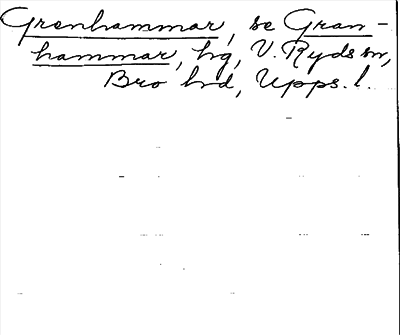 Grenhammar, se Gran-
hammar, hg, V. Ryds sn,
Bro hd, Upps. l.